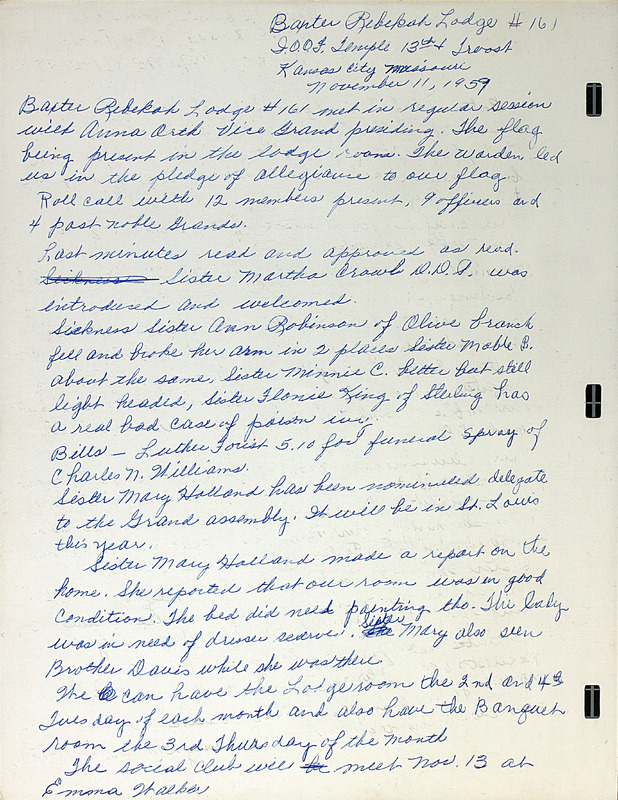 Baxter Rebekah Lodge # 161
I.O.O.F. Temple 13th & Troost
Kansas City Missouri
November 11, 1959
Baxter Rebekah Lodge # 161 met in regular session
with Anna Orth Vice Grand presiding. The flag
being present in the lodge room. The warden led
us in the pledge of allegiance to our flag
Roll call with 12 members present, 9 officers and
4 past noble Grands.
Last minutes read and approved as read.
Sickness Sister Martha Crowb D.D.P. was
introduced and welcomed.
Sickness Sister Ann Robinson of Olive branch
fell and broke her arm in 2 places Sister Mable B.
about the same, Sister Minnie C. better but still
light headed, Sister Flonie King of Sterling has
a real bad case of poison ivy.
Bills - Luther Forist 5.10 for funeral spray of
Charles N. Williams.
Sister Mary Holland has been nominated delegate
to the Grand assembly. It will be in St. Louis
this year.
Sister Mary Holland made a report on the
home. She reported that our room was in good
Condition. The bed did need painting tho. The lady
was in need of dresser scarves. Sister Mary also seen
Brother Davis while she was there
The can have the Lodge room the 2nd and 4th
Tuesday of each month and also have the Banquet
room the 3rd Thursday of the month
The social club will be meet Nov. 13 at
Emma Walker